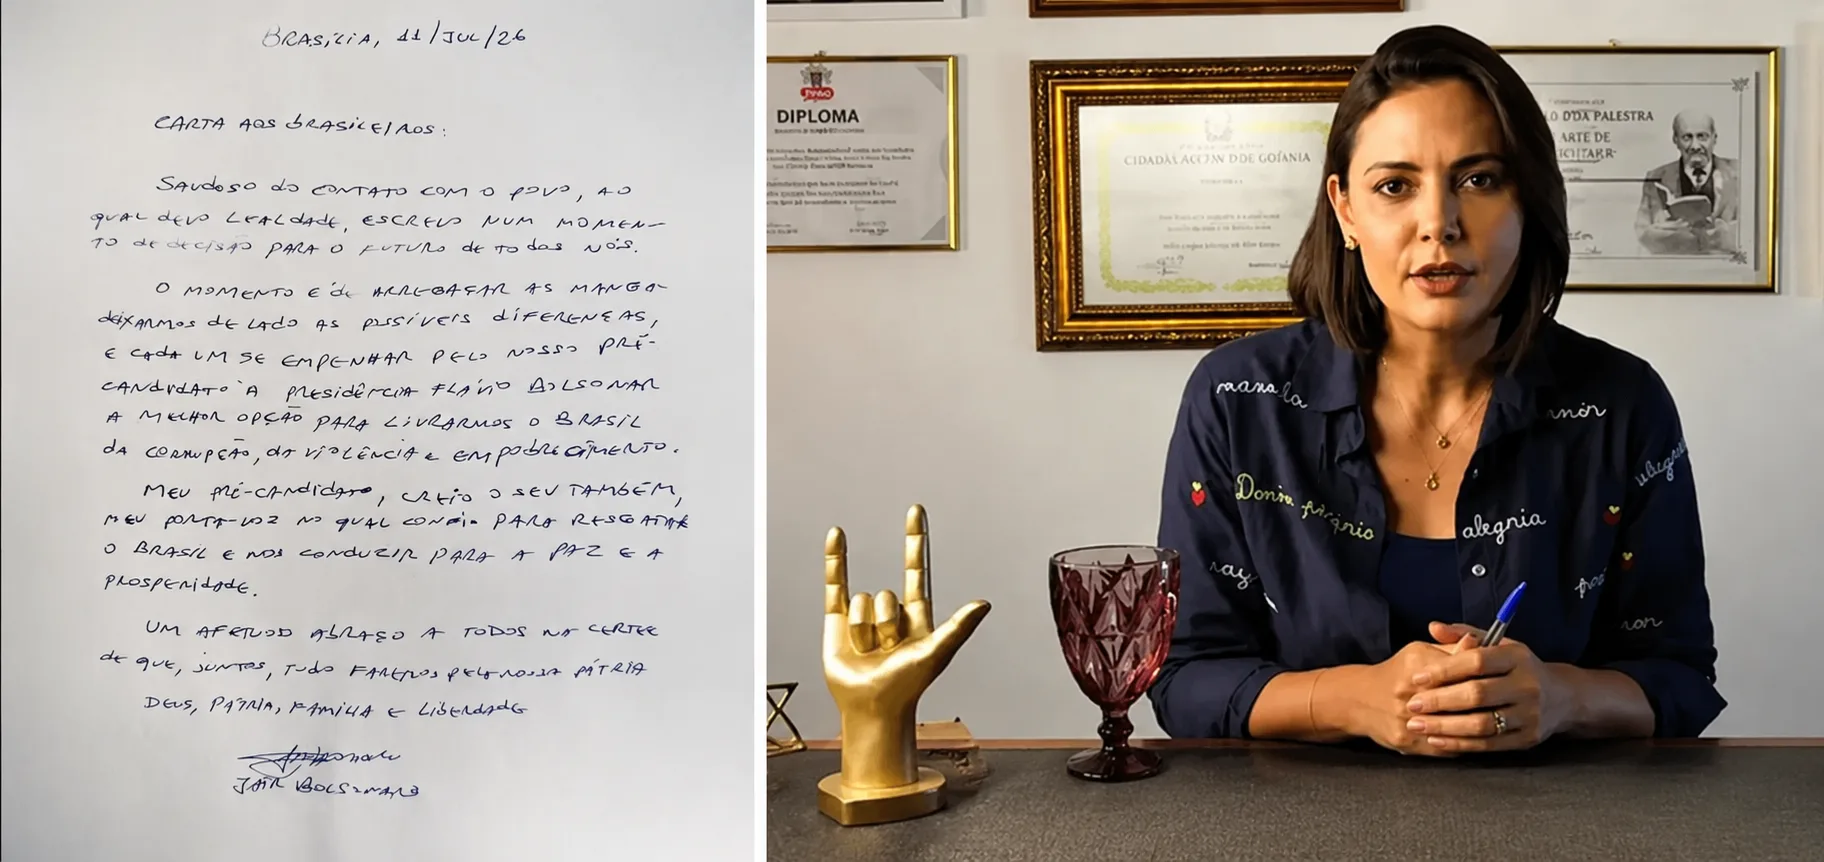 BRASÍLIA, 11/JUL/26
CARTA AOS BRASILEIROS:
SAUDOSO DO CONTATO COM O POVO, AO
QUAL DEVO LEALDADE, ESCREVO NUM MOMEN-
TO DE DECISÃO PARA O FUTURO DE TODOS NÓS.
O MOMENTO É DE ARREGAÇAR AS MANGA-
DEIXARMOS DE LADO AS POSSÍVEIS DIFERENÇAS,
E CADA UM SE EMPENHAR PELO NOSSO PRÉ-
CANDIDATO À PRESIDÊNCIA FLÁVIO BOLSONAR
A MELHOR OPÇÃO PARA LIVRARMOS O BRASIL
DA CORRUPÇÃO, DA VIOLÊNCIA E EMPOBRECIMENTO.
MEU PRÉ-CANDIDATO, CREIO O SEU TAMBÉM,
MEU PORTA-VOZ NO QUAL CONFIO PARA RESGATAR
O BRASIL E NOS CONDUZIR PARA A PAZ E A
PROSPERIDADE.
UM AFETUOSO ABRAÇO A TODOS NA CERTEZ
DE QUE, JUNTOS, TUDO FAREMOS PELA NOSSA PÁTRIA
DEUS, PÁTRIA, FAMÍLIA E LIBERDADE
JAIR BOLSONARO
DIPLOMA
CIDADÃS ACCAN D DE GOÍANIA
LO D'DA PALESTRA
ARTE DE
alegnia